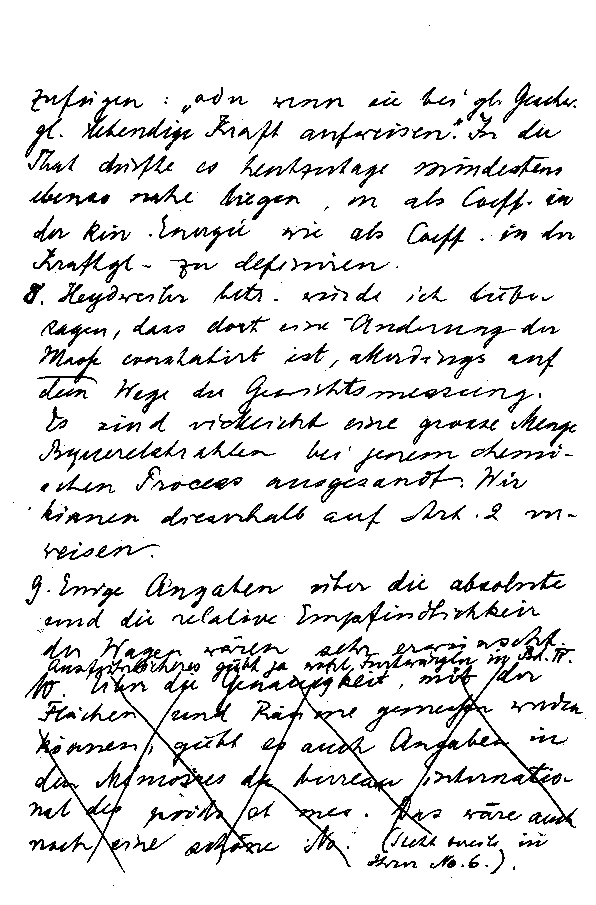 zufügen : „oder wenn sie bei gl. Geschw.
gl. lebendige Kraft aufweisen." In der
That dürfte es heutzutage mindestens
ebenso nahe liegen, m als Coeff. in
der kin. Energie wie als Coeff. in der
Kraftgl. zu definiren.
8. Heydweiller betr. würde ich lieber
sagen, dass dort eine Änderung der
Masse constatirt ist, allerdings auf
dem Wege der Gewichtsmessung.
Es sind vielleicht eine grosse Menge
Bequerelstrahlen bei jenem chemi-
schen Process ausgesandt. Wir
können dieserhalb auf Art. 2 ver-
weisen.
9. Einige Angaben über die absolute
und die relative Empfindlichkeit
der Wagen wären sehr erwünscht.
Ausführlicheres giebt ja wohl in Bd. IV.
10. Über die Genauigkeit, mit der
Flächen und Räume gemessen werden
können, giebt es auch Angaben in
den Mémoires du bureau internatio-
nal des poids et mes. Das wäre auch
noch eine schöne No. (Steht bereits in
Ihrer No. 6.).